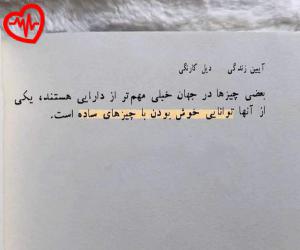 آیین زندگی دیل کارنگی
بعضی چیزها در جهان خیلی مهم‌تر از دارایی هستند، یکی
از آنها توانایی خوش بودن با چیزهای ساده است.